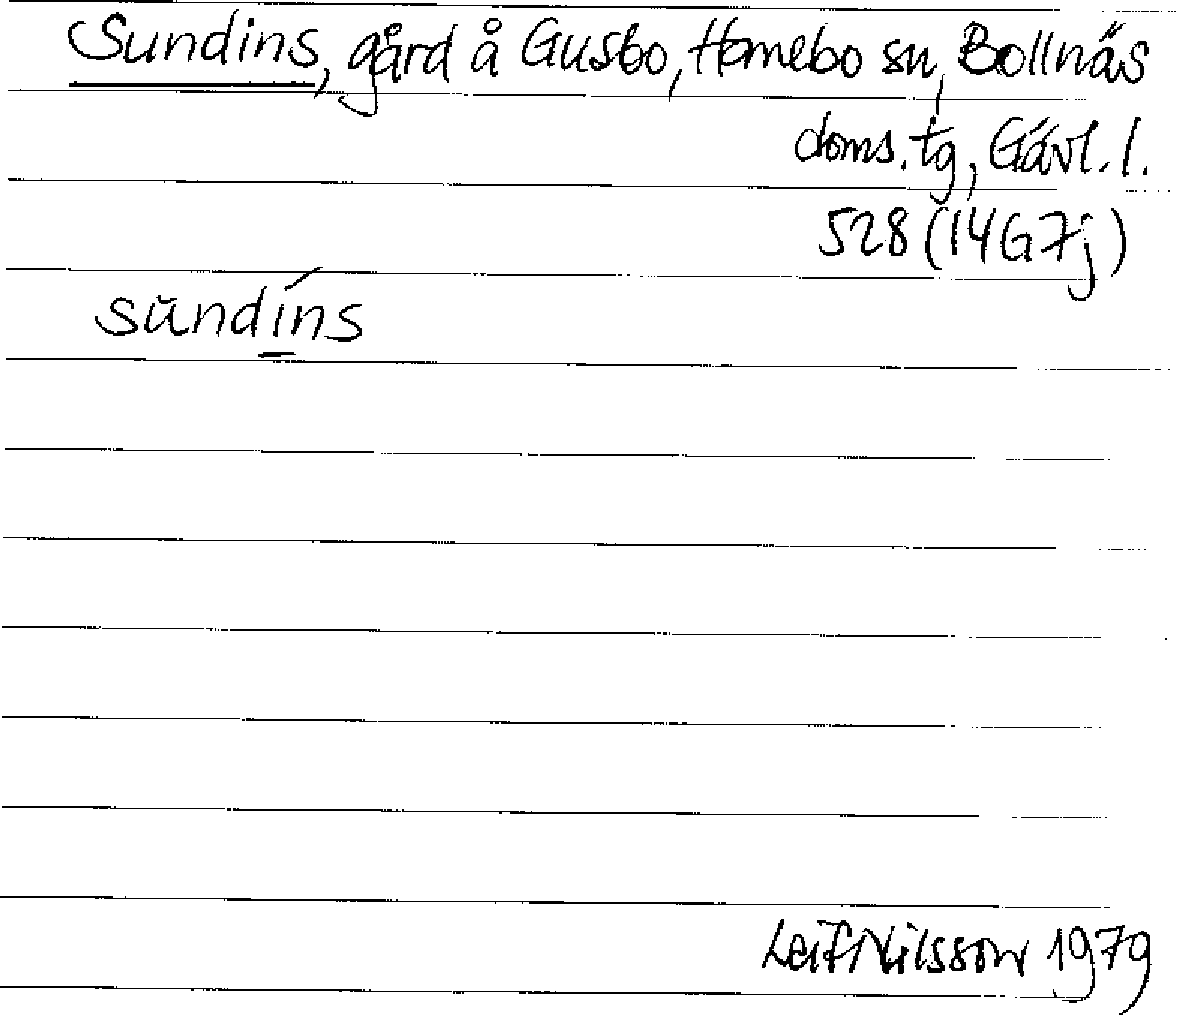 Sundins, gård å Gusbo, Hamebo sn, Bollnäs
doms.tg, Gävl. l.
528 (14G7j)
sŭndíns
Leif Nilsson 1979